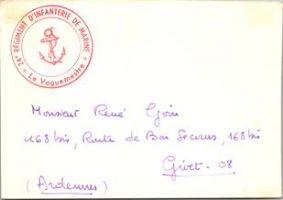 24e RÉGIMENT D'INFANTERIE DE MARINE
« Le Vaguemestre »
Monsieur René
168 bis, Route de Bon Secours, 168 bis
Givet - 08
(Ardennes)